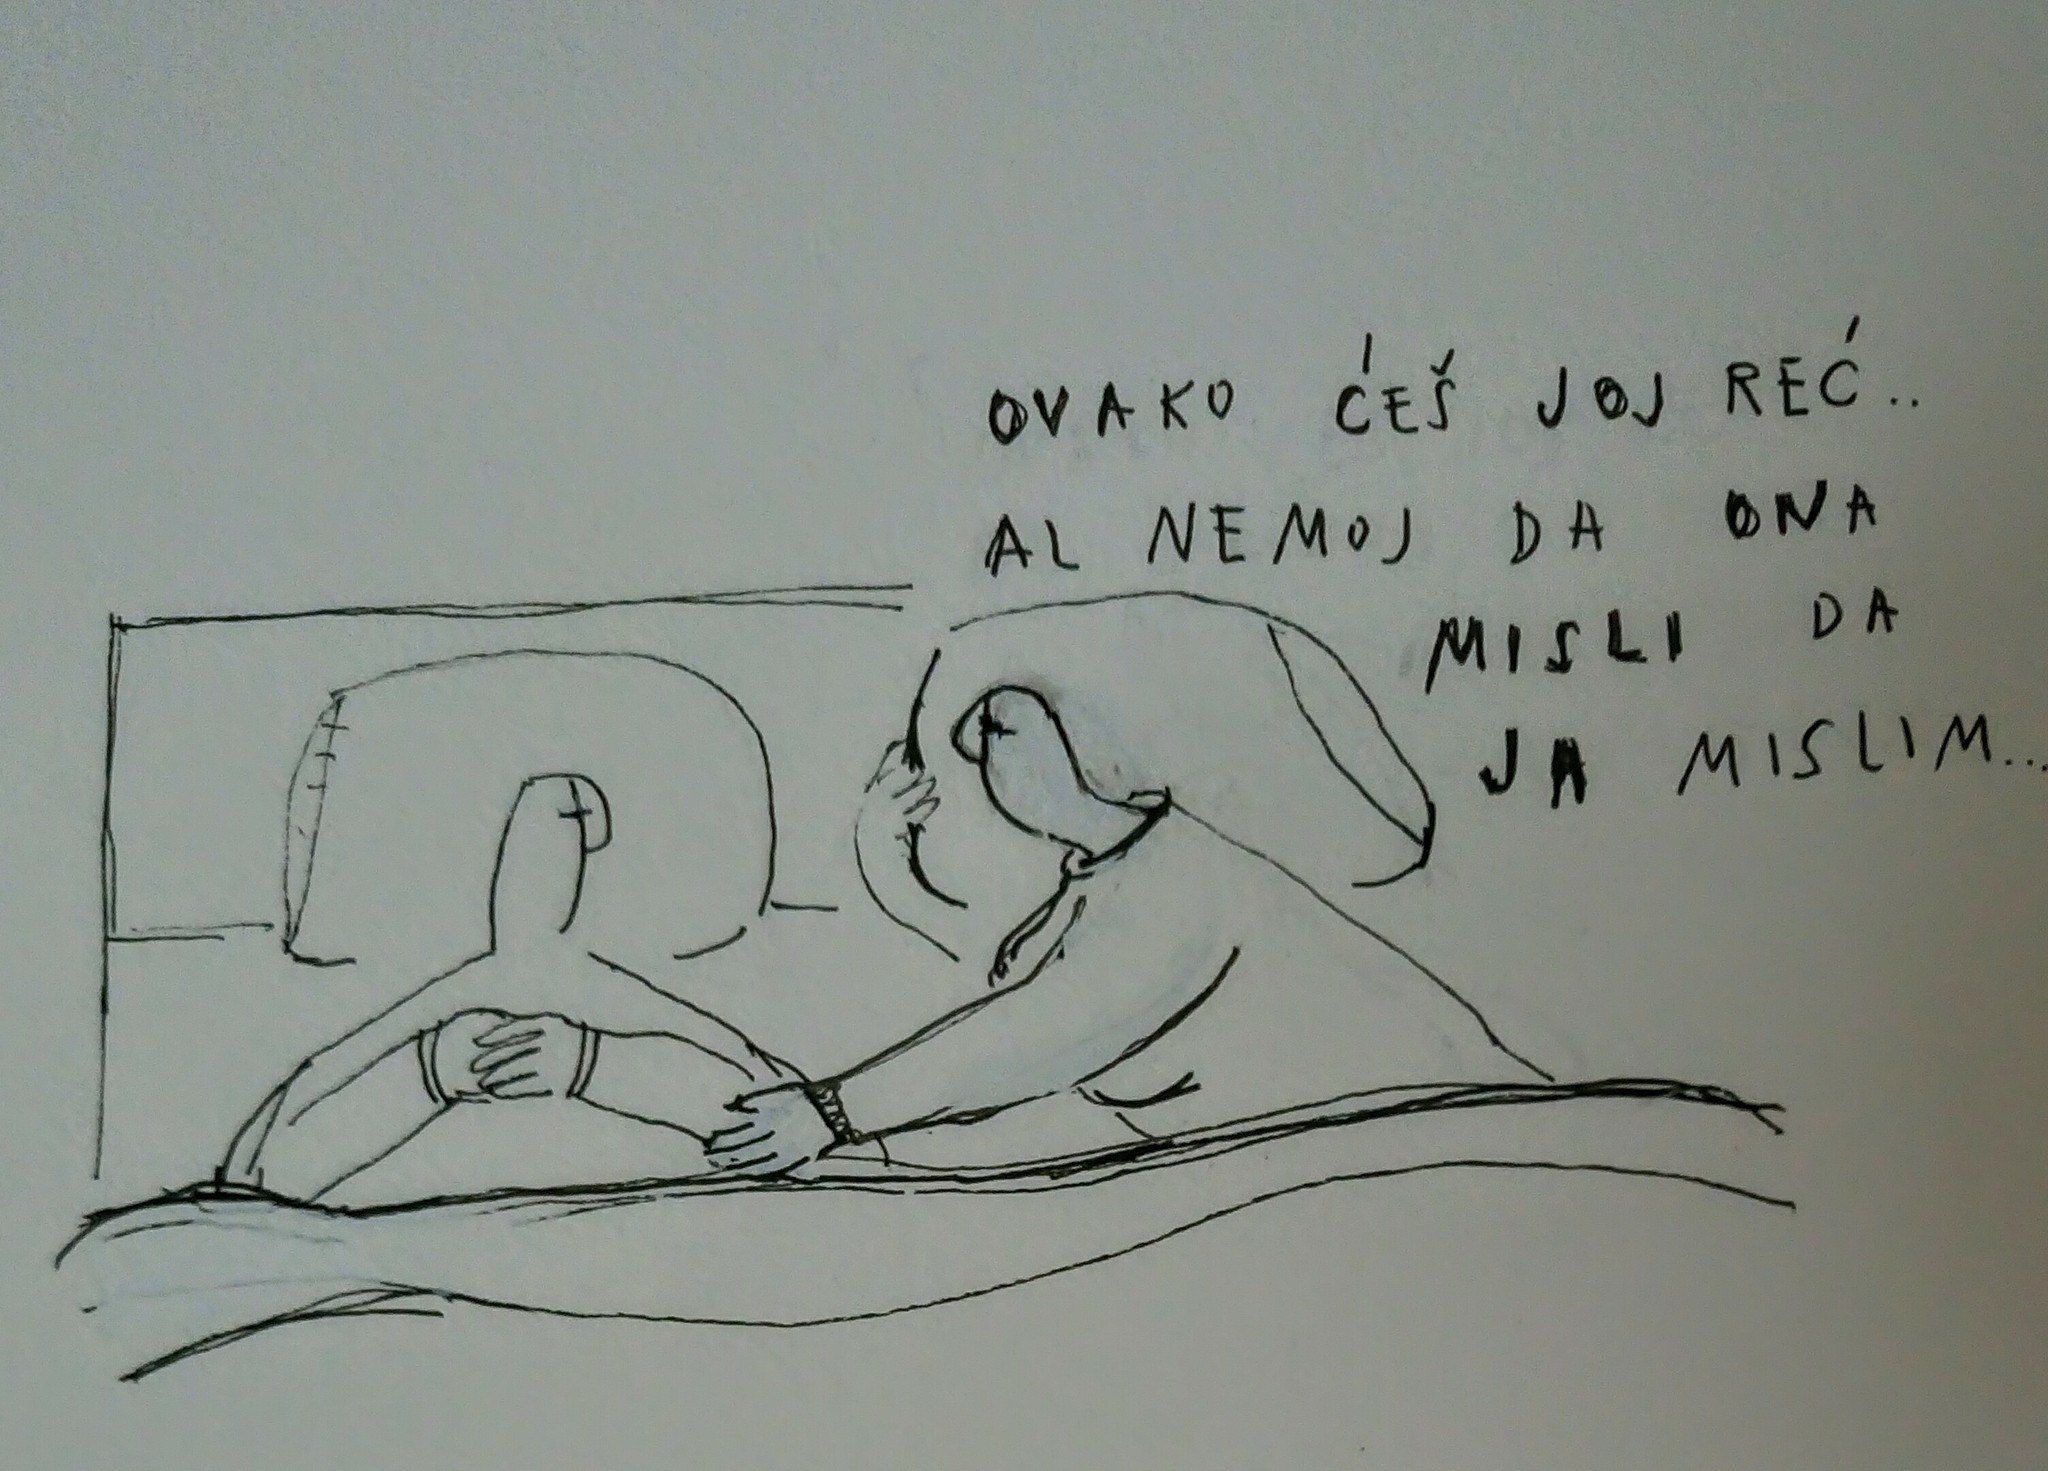 OVAKO ĆEŠ JOJ REĆ..
AL NEMOJ DA ONA
MISLI DA
JA MISLIM...